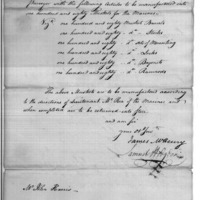 with the following articles to be manufactured into
one hundred and eighty Muskets for the Marines,
one hundred and eighty Musket Barrels
one hundred and eighty do Stocks
one hundred and eighty do of Mounting
one hundred and eighty do Locks
one hundred and eighty do Bayonets
one hundred and eighty do Rammers
The above Muskets are to be manufactured according
to the directions of Lieutenant of the Marines and
when completed are to be returned into Store
and am Sir
your Ob Servt
James McHenry
Samuel Hodgdon
Mr John Harris